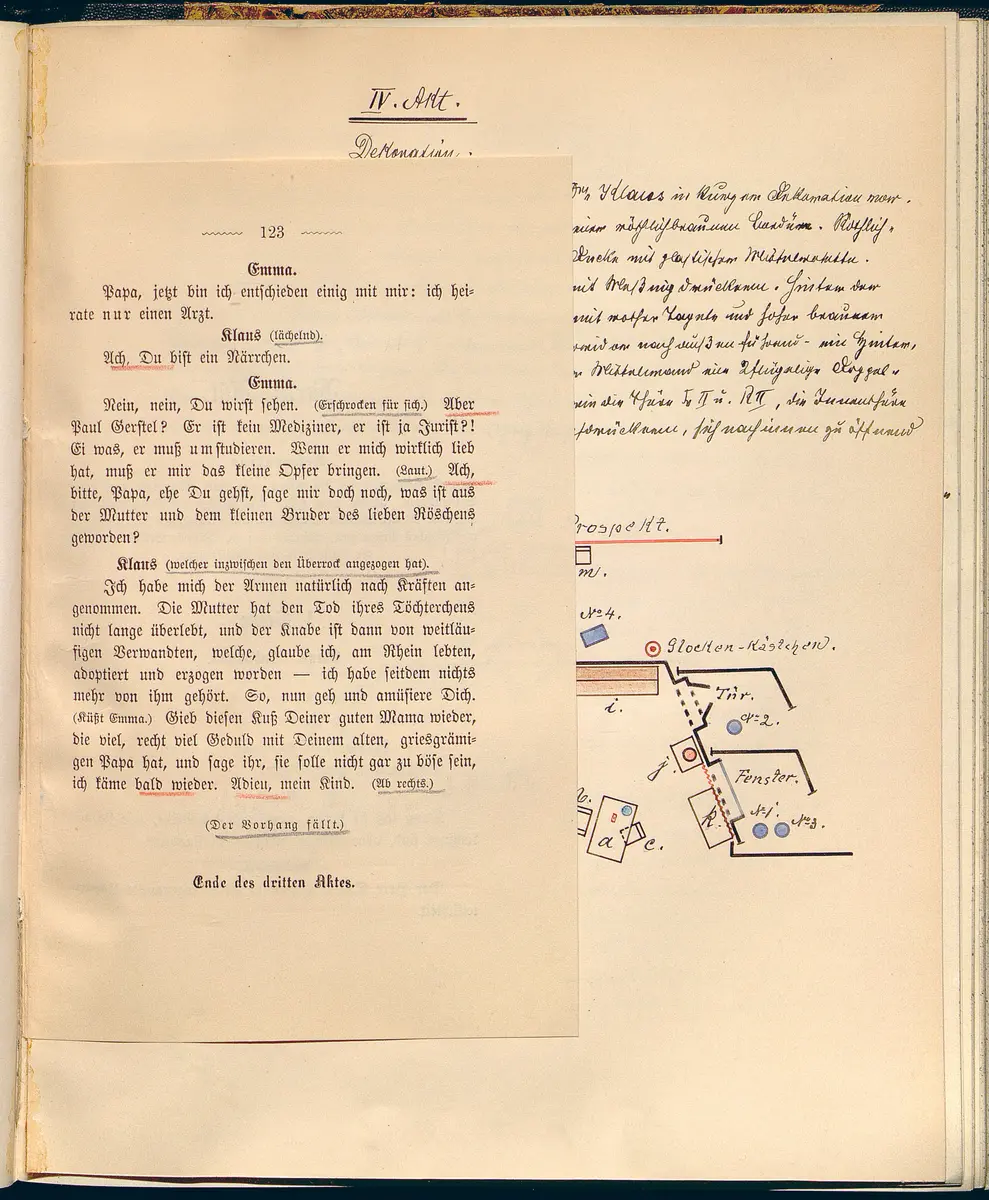 IV. Akt.
Dekoration.
123
Emma.
Papa, jetzt bin ich entschieden einig mit mir: ich hei-
rate nur einen Arzt.
Klaus (lächelnd).
Ach, Du bist ein Närrchen.
Emma.
Nein, nein, Du wirst sehen. (Erschrocken für sich.) Aber
Paul Gerstel? Er ist kein Mediziner, er ist ja Jurist?!
Ei was, er muß umstudieren. Wenn er mich wirklich lieb
hat, muß er mir das kleine Opfer bringen. (Laut.) Ach,
bitte, Papa, ehe Du gehst, sage mir doch noch, was ist aus
der Mutter und dem kleinen Bruder des lieben Röschens
geworden?
Klaus (welcher inzwischen den Überrock angezogen hat).
Ich habe mich der Armen natürlich nach Kräften an-
genommen. Die Mutter hat den Tod ihres Töchterchens
nicht lange überlebt, und der Knabe ist dann von weitläu-
figen Verwandten, welche, glaube ich, am Rhein lebten,
adoptiert und erzogen worden — ich habe seitdem nichts
mehr von ihm gehört. So, nun geh und amüsiere Dich.
(Küßt Emma.) Gieb diesen Kuß Deiner guten Mama wieder,
die viel, recht viel Geduld mit Deinem alten, griesgrämi-
gen Papa hat, und sage ihr, sie solle nicht gar zu böse sein,
ich käme bald wieder. Adieu, mein Kind. (Ab rechts.)
(Der Vorhang fällt.)
Ende des dritten Aktes.
Klaus in Dekoration
röthlichbraunen Bordüre. Röthlich-
Decke mit plastischer Mittelrosette.
mit Messingdrückern. Hinter der
mit rother Tapete und hoher brauner
nach außen führend - ein Hinter,
Mittelwand eine 2flügelige Doppel-
die Thüre L II u. R II, die Innenthüre
drückern, sich nach innen zu öffnend
Prospekt.
m.
No 4.
Glocken-Kästchen.
i.
Tür.
No 2.
j.
Fenster.
k.
No 1.
No 3.
b.
a
c.